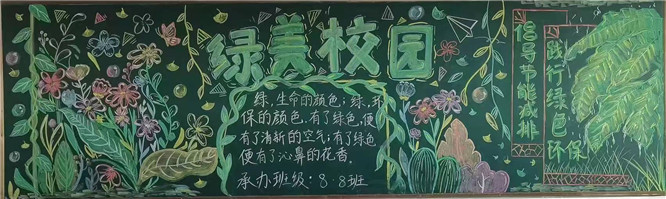 绿美校园
绿,生命的颜色;绿,环
保的颜色.有了绿色,便
有了清新的空气;有了绿色
便有了沁鼻的花香。
承办班级:8.8班
倡导节能减排
践行绿色环保